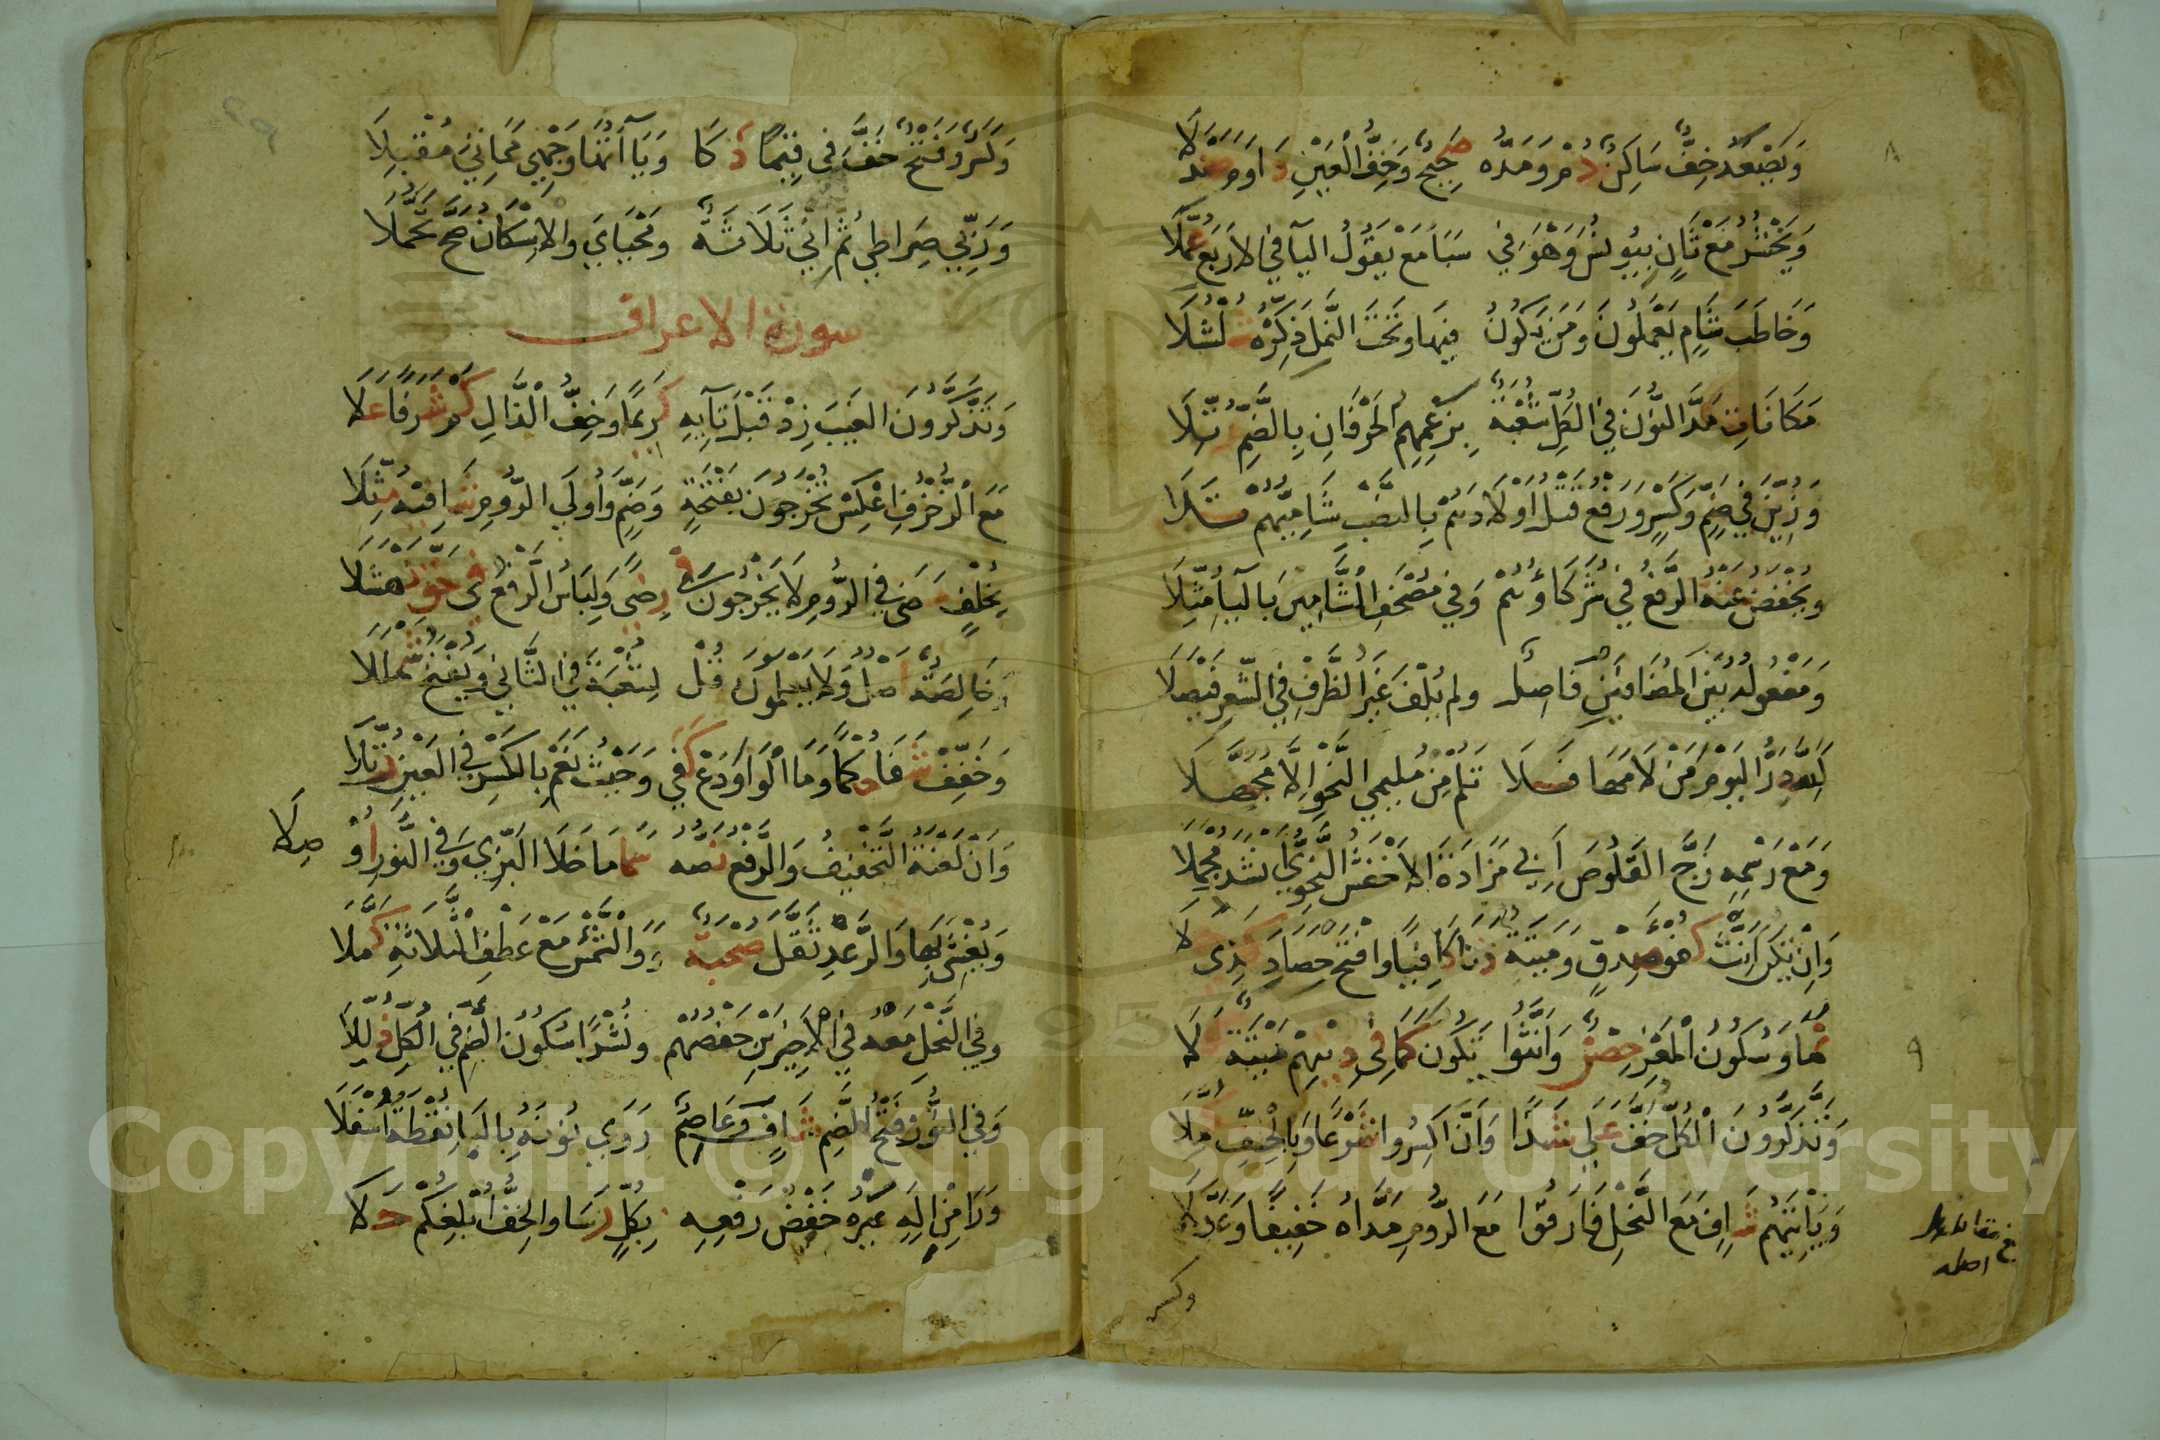 وَيَصْعَدُ خِفٌّ سَاكِنٌ دُمْ وَمَدُّهُ صَحِيحٌ وَخِفُّ الْعَيْنِ دَاوَمَ صَنْدَلَا
وَيَحْشُرُ مَعْ ثَانٍ بِيُونُسَ وَهْوَ فِي سَبَأْ مَعْ يَقُولُ اليَا فِي الارْبَعِ عُمِّلَا
وَخَاطَبَ شَامٍ يَعْمَلُونَ وَمَنْ يَكُونُ فِيهَا وَتَحْتَ النَّمْلِ ذَكِّرْهُ شُلْشُلَا
مَكَانَاتِ مَدَّ النُّونَ فِي الكُلِّ شُعْبَةٌ بِزَعْمِهِمُ الْحَرْفَانِ بِالضَّمِّ رُتِّلَا
وَزُيِّنَ فِي ضَمٍّ وَكَسْرٍ وَرَفْعُ قَتْلَ أَوْلَادَهُمْ بِالنَّصْبِ شَامِيُّهُمْ تَلَا
وَيُخْفَضُ عَنْهُ الرَّفْعُ فِي شُرَكَاؤُهُمْ وَفِي مُصْحَفِ الشَّامِينَ بَالْيَاءِ مُثِّلَا
وَمَفْعُولُهُ بَيْنَ المُضَافَيْنِ فَاصِلٌ ولم يُلْفَ غَيْرُ الظَّرْفِ فِي الشِّعْرِ فَيْصَلَا
لِلَّهِ دَرُّ اليَوْمَ مَنْ لَامَهَا فَلَا تَلُمْ مِنْ مُلِيمِي النَّحْوِ إِلَّا مُجَهِّلَا
وَمَعْ رَسْمِهِ زَجَّ القَلُوصَ أَبِي مَزَادَةَ الاخْفَشُ النَّحْوِيُّ أَنْشَدَ مُجْمِلَا
وَإِنْ تَكُنْ أَنِّثْ كُفْؤَ صِدْقٍ وَمَيْتَةٌ دَنَا كَافِيًا وَافْتَحْ حِصَادَ كَذِي حُلَا
نَمَا وَسُكُونُ الْمَعْزِ حِصْنٌ وَأَنَّثُوا تَكُونُ كَمَا فِي دِينِهِمْ مَيْتَةٌ كَلَا
وَتَذَّكَّرُونَ الْكُلُّ خَفَّ عَلَى شَذًا وَأَنَّ اكْسِرُوا شَرْعًا وَبِالْخِفِّ كُمِّلَا
وَيَأْتِيَهُمْ شَافٍ مَعَ النَّحْلِ فَارَقُوا مَعَ الرُّومِ مَدَّاهُ خَفِيفًا وَعَدَّلَا
وكسر
وَكَسْرٌ وَفَتْحٌ خَفَّ فِي قِيَمًا ذَكَا وَيَاآتُهَا وَجْهِي مَمَاتِيَ مُقْبِلَا
وَرَبِّي صِرَاطِي ثُمَّ إِنِّي ثَلَاثَةٌ وَمَحْيَايَ وَالاِسْكَانُ صَحَّ تَحَمُّلَا
سورة الاعراف
وَتَذَّكَّرُونَ الغَيْبَ زِدْ قَبْلَ تَائِهِ كَرِيمًا وَخِفُّ الْذَّالِ كَمْ شَرَفًا عَلَا
مَعَ الْزُّخْرُفِ اعْكِسْ تُخْرَجُونَ بِفَتْحَةٍ وَضَمٍّ وَأُولَى الرُّومِ شَافِيهِ مُثِّلَا
بِخُلْفٍ مَضَى فِي الرُّومِ لَا يَخْرُجُونَ فِي رِضًى وَلِبَاسُ الرَّفْعُ فِي حَقِّ نَهْشَلَا
وَخَالِصَةٌ أَصْلٌ وَلَا يَعْلَمُونَ قُلْ لِشُعْبَةَ فِي الثَّانِي وَيُفْتَحُ شَمْلَلَا
وَخَفِّفْ شَفَا حُكْمًا وَمَا الْوَاوَ دَعْ كَفَى وَحَيْثُ نَعَمْ بِالكَسْرِ فِي العَيْنِ رُتِّلَا
وَأَنْ لَعْنَةُ التَّخْفِيفُ وَالرَّفْعُ نَصُّهُ سَمَا مَا خَلَا البَزِّي وَفِي النُّورِ أُوْصِلَا
وَيُغْشِي بِهَا وَالرَّعْدِ ثَقَّلَ صُحْبَةٌ وَوَالْشَّمْسُ مَعْ عَطْفِ الْثَّلَاثَةِ كَمَّلَا
وَفِي النَّحْلِ مَعْهُ فِي الْأَخِيرَيْنِ حَفْصُهُمْ وَنُشْرًا سُكُونُ الضَّمِّ فِي الْكُلِّ ذُلِّلَا
وَفِي النُّونِ فَتْحُ الضَّمِّ شَافٍ وَعَاصِمٌ رَوَى نُونَهُ بِالْبَاءِ نُقْطَةٌ أَسْفَلَا
وَرَا مِنْ إِلَهٍ غَيْرُهُ خَفْضُ رَفْعِهِ بِكُلٍّ رَسَا وَالخِفُّ أُبْلِغُكُمْ حَلَا
Copyright © King Saud University